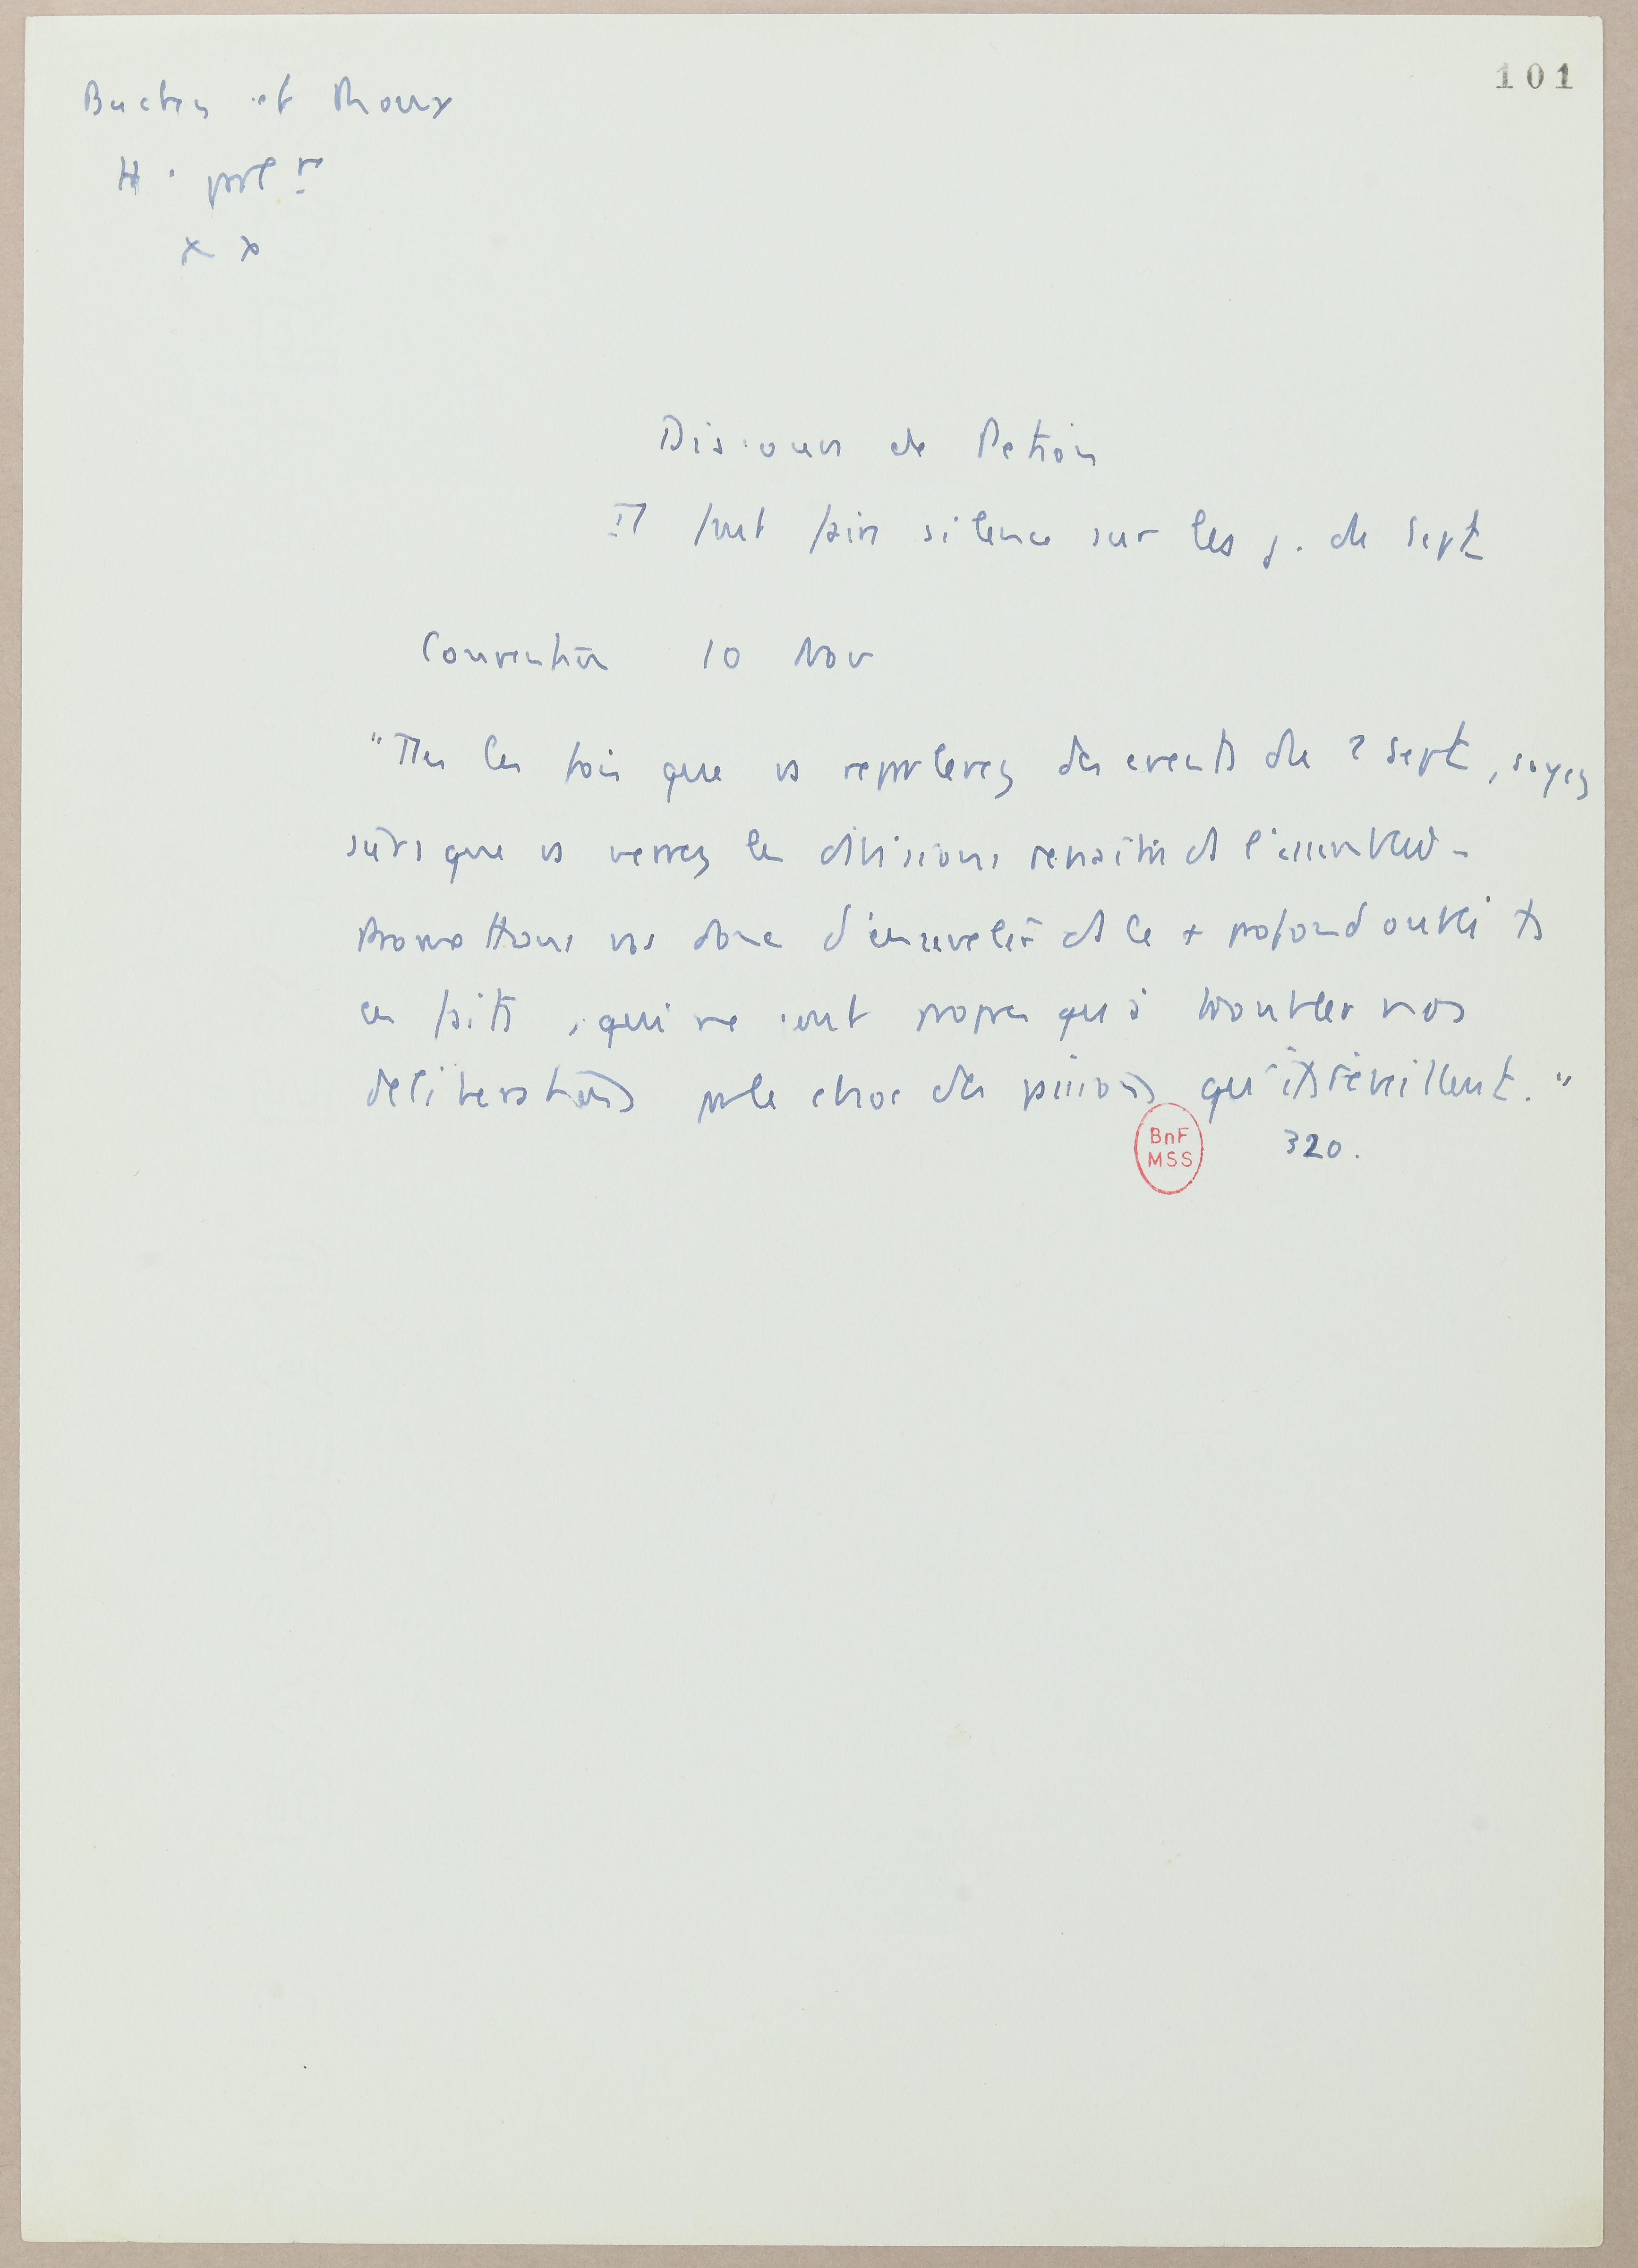 101
Buchez et Roux
H. parl re
XX
Discours de Petion
Il faut faire silence sur les j. de Sept
Convention 10 Nov
"Ttes les fois que vs reparlerez des events du 2 Sept, soyez
sûrs que vs verrez les divisions renaître ds l'assemblée.
Promettons ns donc d'ensevelir ds le + profond oubli ts
ces faits, qui ne sont propres qu'à troubler nos
deliberations par le choc des passions qu'ils réveillent."
320.
BnF
MSS